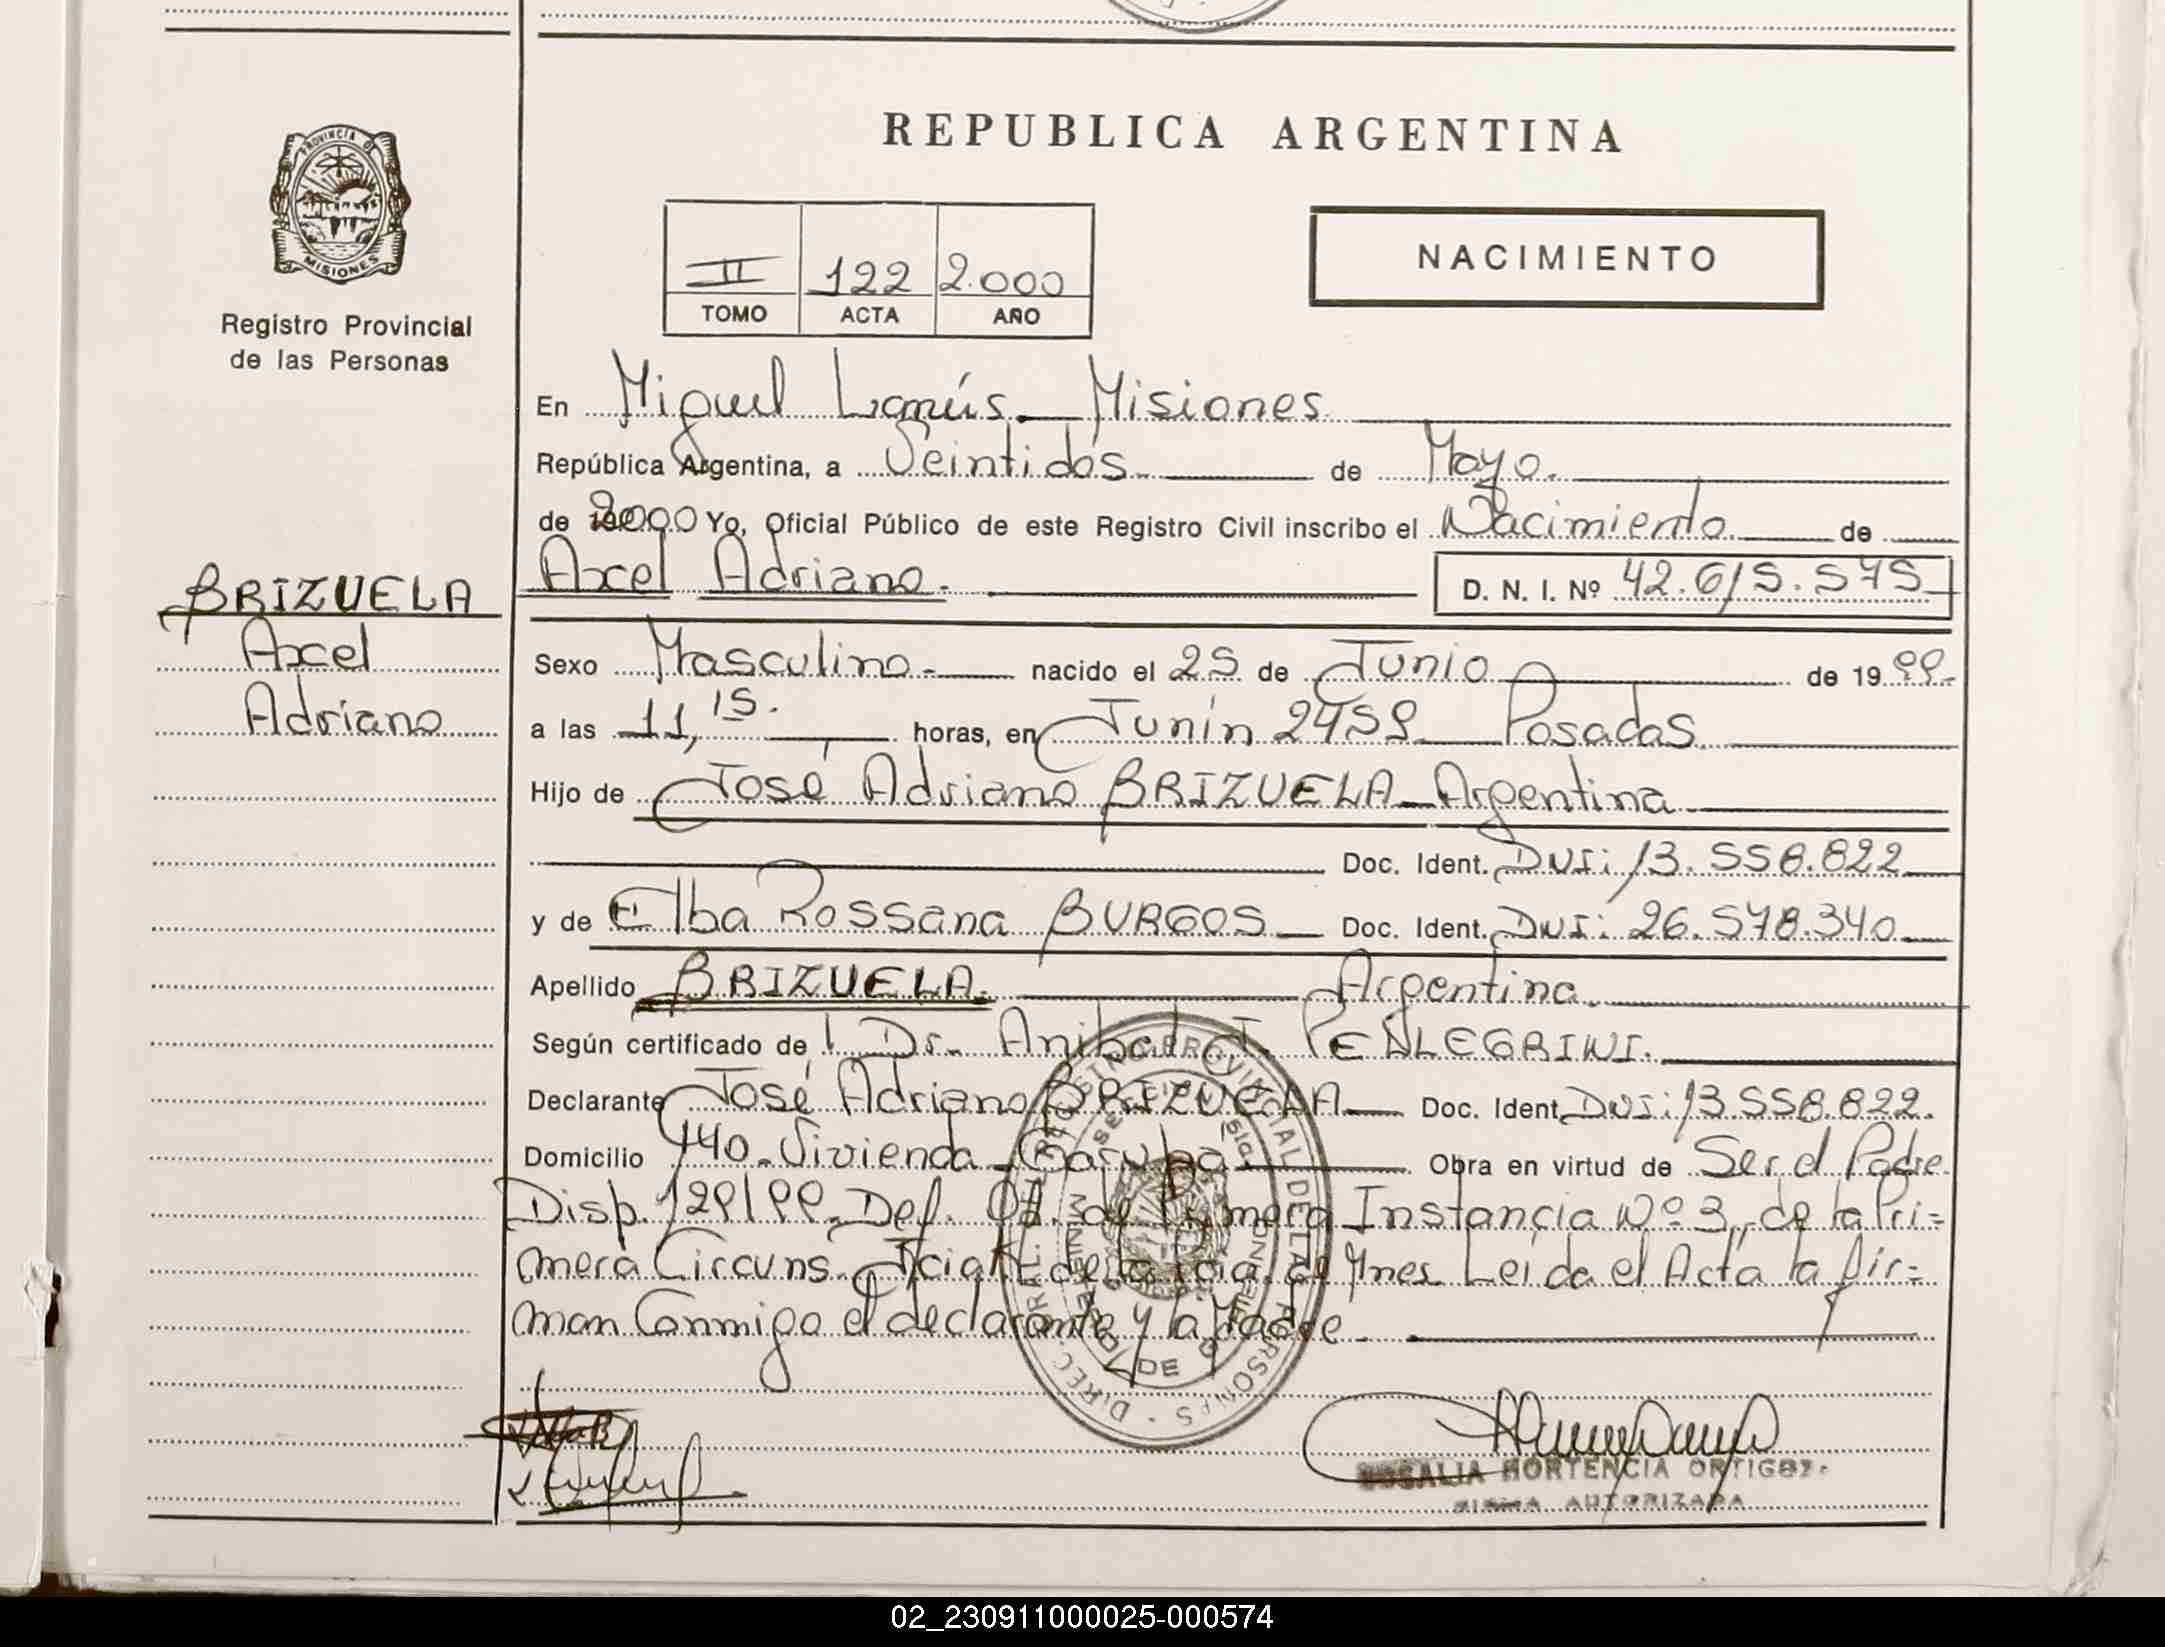 REPUBLICA ARGENTINA
PROVINCIA DE
MISIONES
Registro Provincial
de las Personas
II 122 2.000
TOMO ACTA AÑO
NACIMIENTO
En Miguel Lanús Misiones
República Argentina, a Veintidós de Mayo.
de 2000 Yo, Oficial Público de este Registro Civil inscribo el Nacimiento de
Axel Adriano. D. N. I. Nº 42.615.575
BRIZUELA
Axel
Adriano
Sexo Masculino nacido el 25 de Junio de 1999
a las 11,15. horas, en Junín 2459 Posadas
Hijo de José Adriano BRIZUELA Argentina
Doc. Ident. DNI: 13.558.822
y de Elba Rossana BURGOS Doc. Ident. DNI: 26.578.340
Apellido BRIZUELA. Argentina.
Según certificado de Dr. Anibal J. PENLEGRINI.
Declarante José Adriano BRIZUELA Doc. Ident. DNI: 13.558.822.
Domicilio 440 Vivienda Garupá Obra en virtud de Ser el Padre
Disp. 129/99 Def. Of. de Primera Instancia Nº 3, de la Pri=
mera Circuns. Jcial de la Pcia. de Mnes. Leída el Acta la fir=
man Conmigo el declarante y la Madre.
DIREC. GRAL. REGISTRO PROVINCIAL DE LAS PERSONAS
DE
ROSALIA HORTENCIA ORTIGOZ
FIRMA AUTORIZADA
02_230911000025-000574